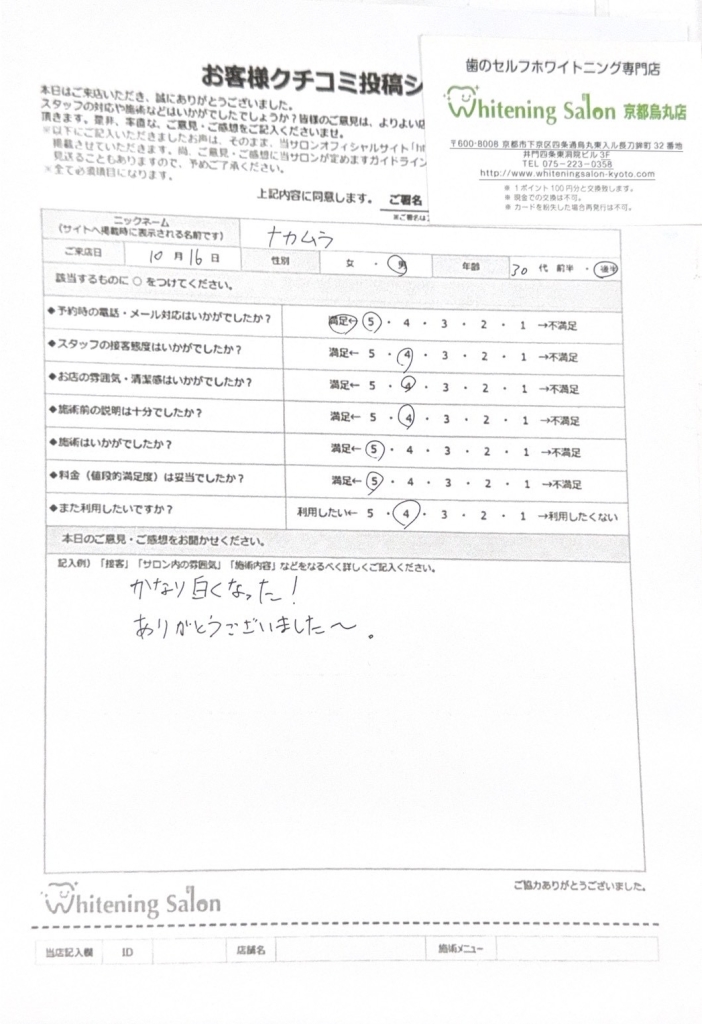 お客様クチコミ投稿シ
本日はご来店いただき、誠にありがとうございました。
スタッフの対応や施術などはいかがでしたでしょうか？皆様のご意見は、よりよい店
頂きます。是非、率直な、ご意見・ご感想をご記入くださいませ。
※以下にご記入いただきましたお声は、そのまま、当サロンオフィシャルサイト「ht
掲載させていただきます。尚、ご意見・ご感想に当サロンが定めますガイドライン
見送ることもありますので、予めご了承ください。
※全て必須項目になります。
上記内容に同意します。 ご署名
※ご署名は
歯のセルフホワイトニング専門店
Whitening Salon 京都烏丸店
〒600-8008 京都市下京区四条通烏丸東入ル長刀鉾町 32 番地
井門四条東洞院ビル 3F
TEL 075-223-0358
http://www.whiteningsalon-kyoto.com
※ 1ポイント 100円分と交換致します。
※ 現金での交換は不可。
※ カードを紛失した場合再発行は不可。
ニックネーム
（サイトへ掲載時に表示される名前です） ナカムラ
ご来店日 10 月 16 日 性別 女 ・ 男 年齢 30 代 前半 ・ 後半
該当するものに ○ をつけてください。
◆予約時の電話・メール対応はいかがでしたか？ 満足← 5 ・ 4 ・ 3 ・ 2 ・ 1 →不満足
◆スタッフの接客態度はいかがでしたか？ 満足← 5 ・ 4 ・ 3 ・ 2 ・ 1 →不満足
◆お店の雰囲気・清潔感はいかがでしたか？ 満足← 5 ・ 4 ・ 3 ・ 2 ・ 1 →不満足
◆施術前の説明は十分でしたか？ 満足← 5 ・ 4 ・ 3 ・ 2 ・ 1 →不満足
◆施術はいかがでしたか？ 満足← 5 ・ 4 ・ 3 ・ 2 ・ 1 →不満足
◆料金（値段的満足度）は妥当でしたか？ 満足← 5 ・ 4 ・ 3 ・ 2 ・ 1 →不満足
◆また利用したいですか？ 利用したい← 5 ・ 4 ・ 3 ・ 2 ・ 1 →利用したくない
本日のご意見・ご感想をお聞かせください。
記入例）「接客」「サロン内の雰囲気」「施術内容」などをなるべく詳しくご記入ください。
かなり白くなった！
ありがとうございました〜。
ご協力ありがとうございました。
Whitening Salon
当店記入欄 ID 店舗名 施術メニュー